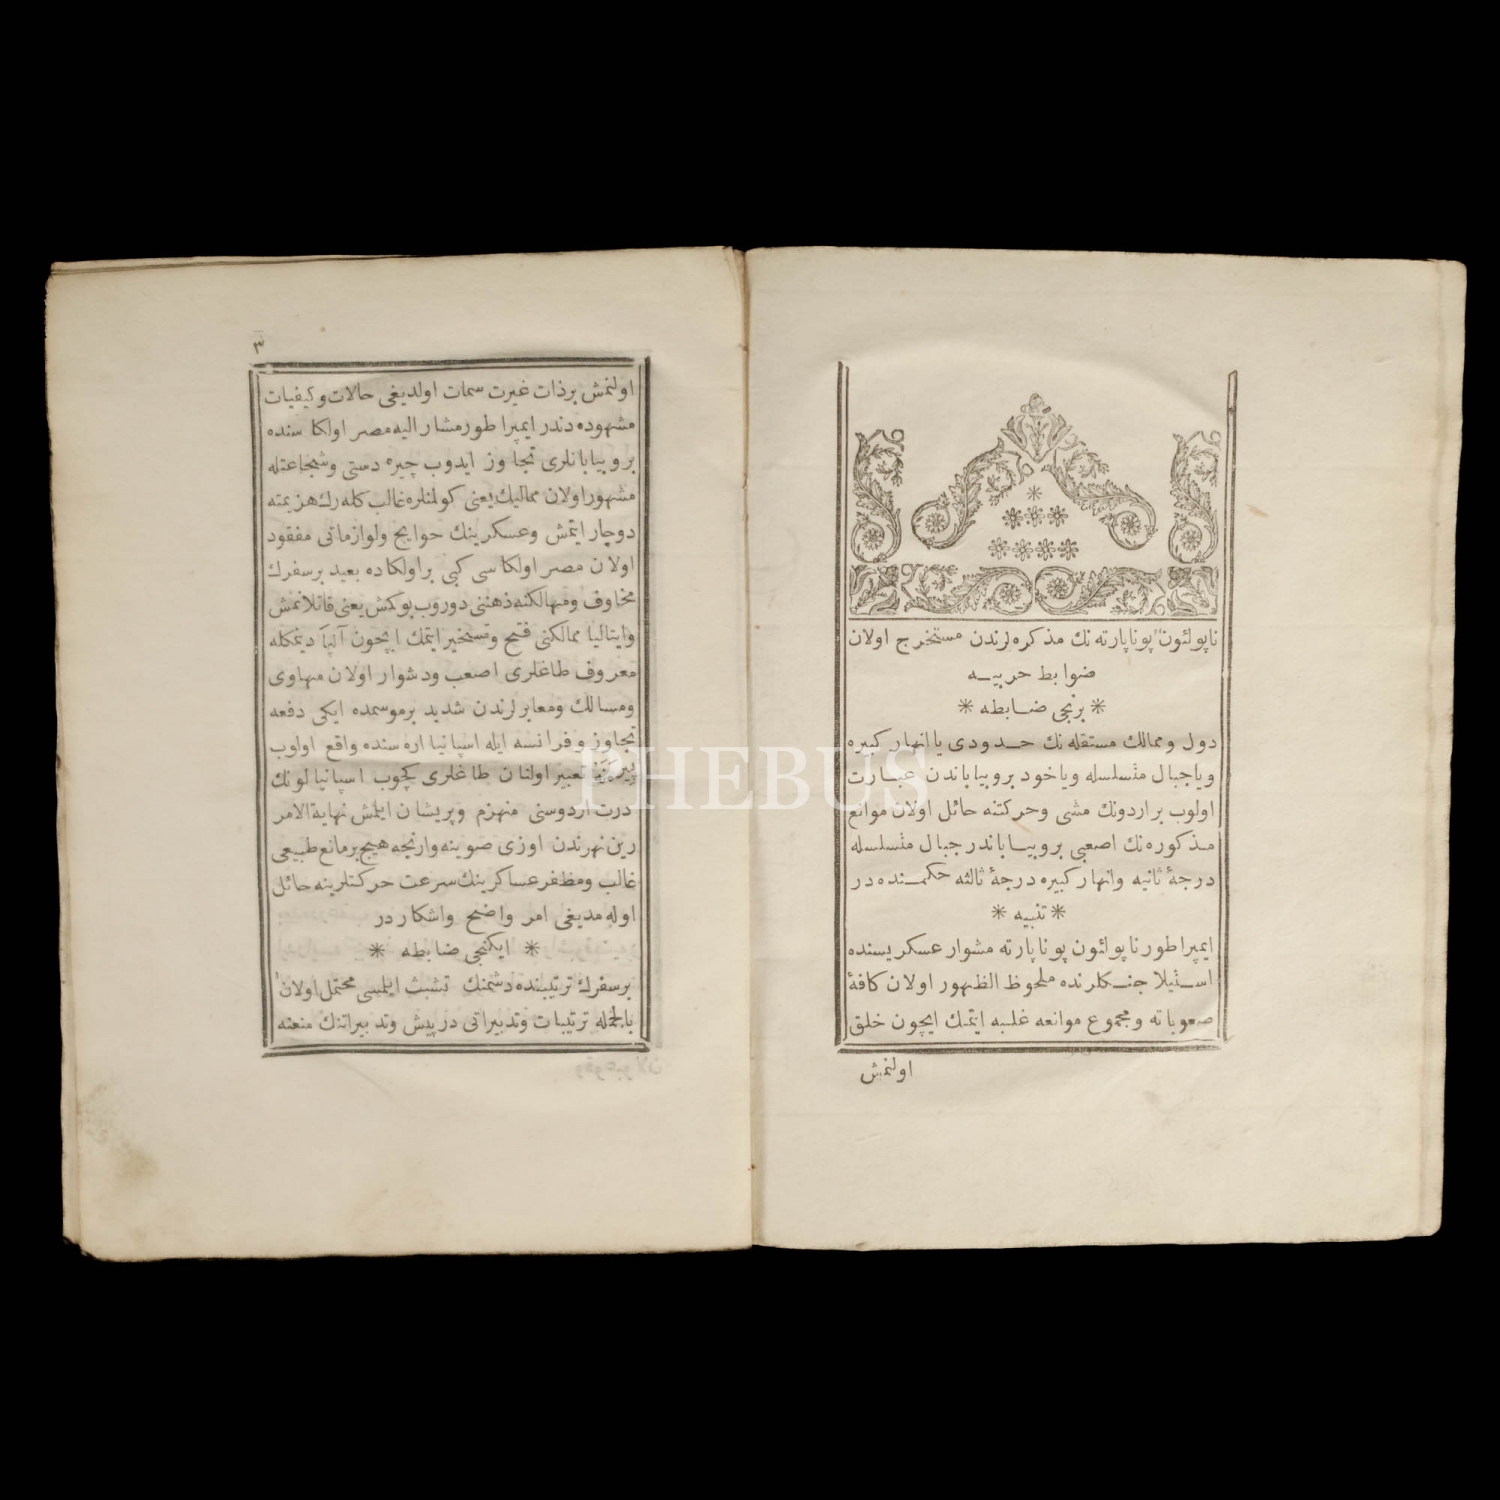 ناپولئون پوناپارته نك مذكره لرندن مستخرج اولان
ضوابط حربيـه
* برنجى ضـابطه *
دول وممالك مستقله نك حـدودى يا انهار كبيره
وياجبال متسلسله وياخود بروبياباندن عبـارت
اولوب براردونك مشى وحركتنه حائل اولان موانع
مـذكوره نك اصعبى بروبيـاباندر جبال متسلسله
درجهٔ ثانيه وانهار كبيره درجهٔ ثالثه حكمـنده در
* تنبيه *
ايمپراطور ناپوائون پوناپارته مشوار عسكريسنده
اسـتيلا جنـكلرنده ملحوظ الظهور اولان كافهٔ
صعوباته ومجموع موانعه غلبه ايتمك ايچون خلق
اولنمش
٣
اولنمش برذات غيرت سمات اولديغى حالات وكيفيات
مشهوده دندر ايمپراطور مشار اليه مصر اولكا سنده
بروبيابانلرى تجاوز ايدوب چيره دستى وشجاعتله
مشهور اولان مماليك يعنى كولمنلره غالب كله رك هزيمته
دوچار ايتمش وعسكرينك حوايج ولوازماتى مفقود
اولان مصر اولكاسى كبى براولكاده بعيد برسفرك
مخاوف ومهالكنه ذهننى دوروب بوكمش يعنى قاتلانمش
وايتاليا ممالكنى فتح وتسخير ايتمك ايچون آلپا ديمكله
معروف طاغلرى اصعب ودشوار اولان مهاوى
ومسالك ومعابرلرندن شديد برموسمده ايكى دفعه
تجاوز وفرانسه ايله اسپانيا اره سنده واقع اولوب
تعبير اولنان طاغلرى كچوب اسپانيالونك
درت اردوسنى منهزم وپريشان ايلمش نهاية الامر
رين نهرندن اوزى صوينه وارنجه هيچ برمانع طبيعى
غالب ومظفر عساكرينك سرعت حركتلرينه حائل
اوله مديغى امر واضح واشكاردر
* ايكنجى ضابطه *
برسفرك ترتيبنده دشمنك تشبث ايلمسى محتمل اولان
بالجمله ترتيبات وتدبيراتى درپيش وتدبيراتنك منعنه
PHEBUS